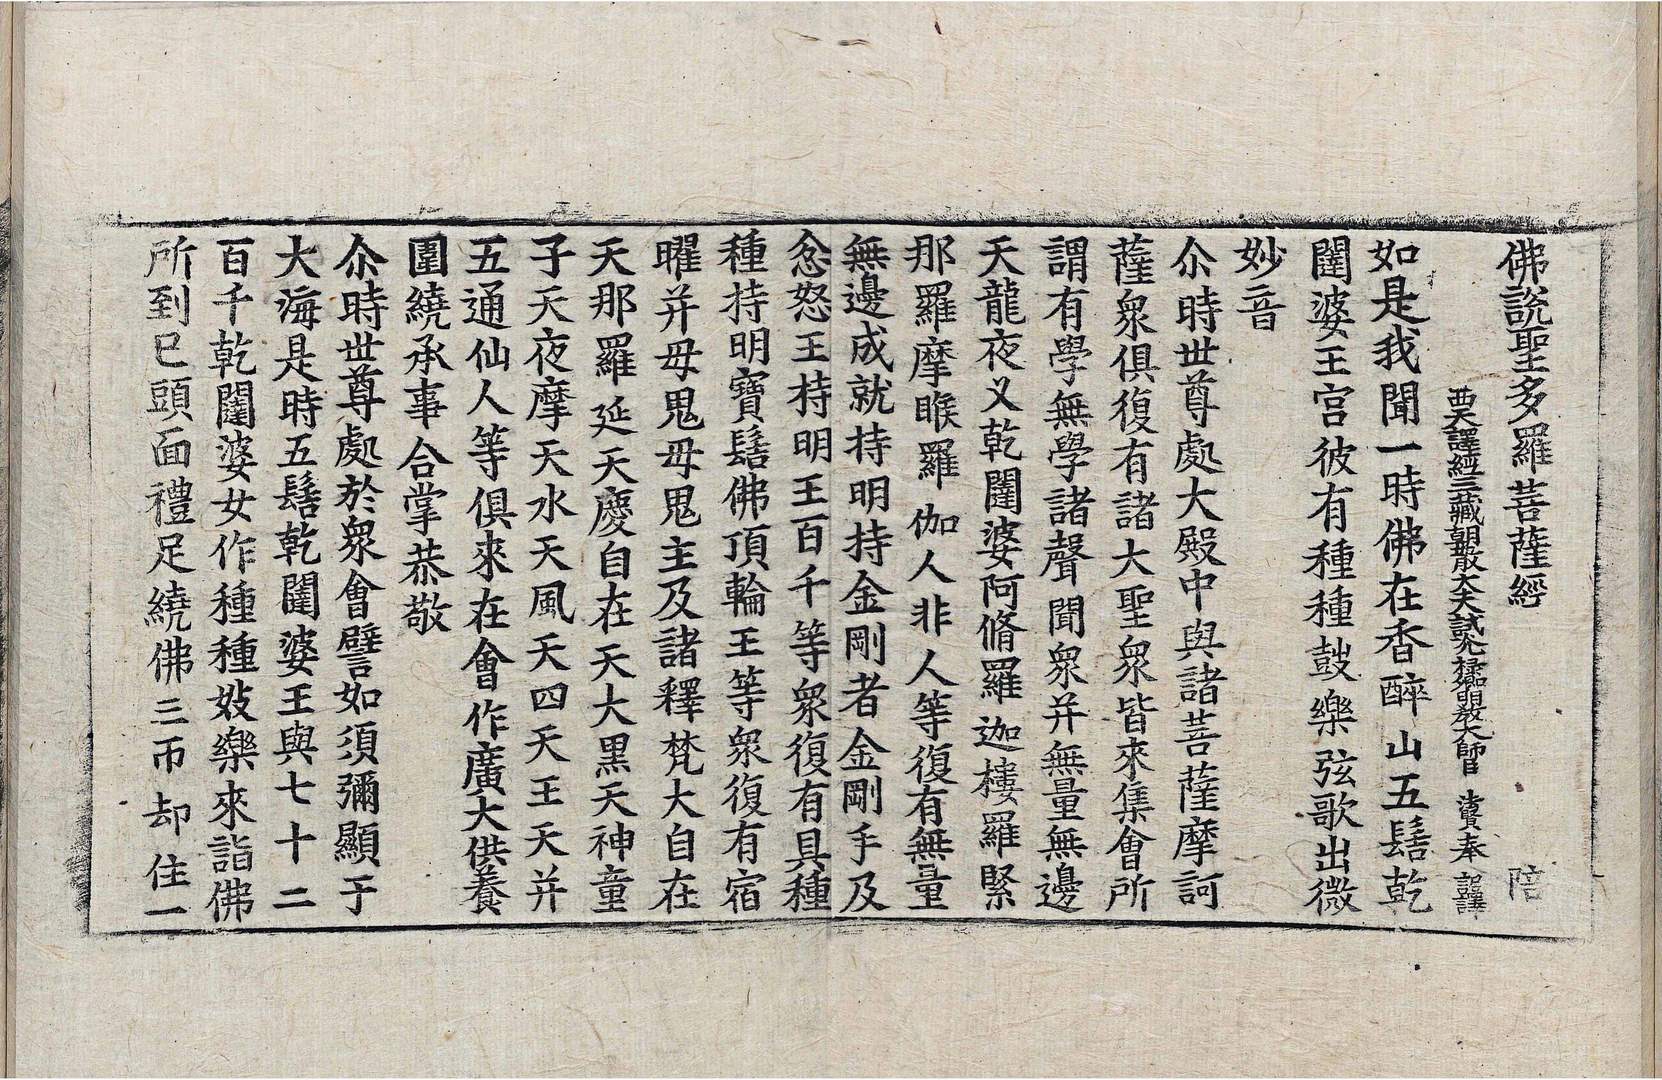 佛說聖多羅菩薩經 陪
西天譯經三藏朝散大夫試光祿卿明教大師臣 法賢奉 詔譯
如是我聞一時佛在香醉山五髻乾
闥婆王宮彼有種種鼓樂弦歌出微
妙音
尒時世尊處大殿中與諸菩薩摩訶
薩衆俱復有諸大聖衆皆來集會所
謂有學無學諸聲聞衆并無量無邊
天龍夜叉乾闥婆阿脩羅迦樓羅緊
那羅摩睺羅伽人非人等復有無量
無邊成就持明持金剛者金剛手及
忿怒王持明王百千等衆復有具種
種持明寶髻佛頂輪王等衆復有宿
曜并母鬼母鬼主及諸釋梵大自在
天那羅延天慶自在天大黑天神童
子天夜摩天水天風天四天王天并
五通仙人等俱來在會作廣大供養
圍繞承事合掌恭敬
尒時世尊處於衆會譬如須彌顯于
大海是時五髻乾闥婆王與七十二
百千乾闥婆女作種種妓樂來詣佛
所到已頭面禮足繞佛三帀却住一